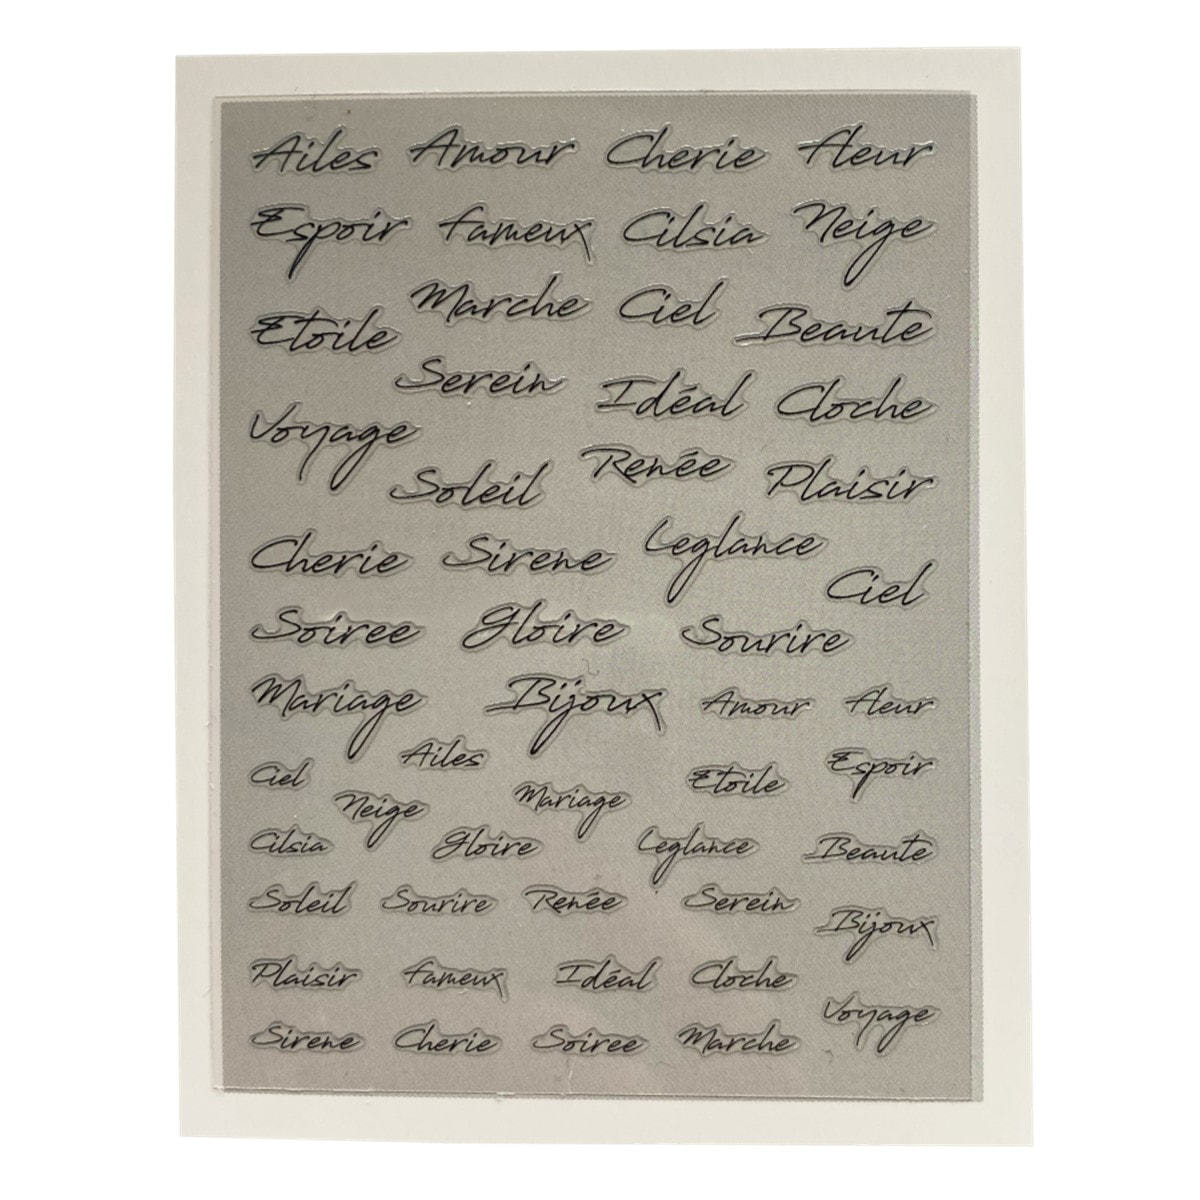 Ailes Amour Cherie fleur
Espoir fameux Cilsia Neige
Etoile Marche Ciel Beaute
Voyage Serein Idéal Cloche
Soleil Renée Plaisir
Cherie Sirene Leglance Ciel
Soiree Gloire Sourire
Mariage Bijoux Amour fleur
Ciel Ailes Etoile Espoir
Neige Mariage
Cilsia Gloire Leglance Beaute
Soleil Sourire Renée Serein Bijoux
Plaisir fameux Idéal Cloche Voyage
Sirene Cherie Soiree Marche